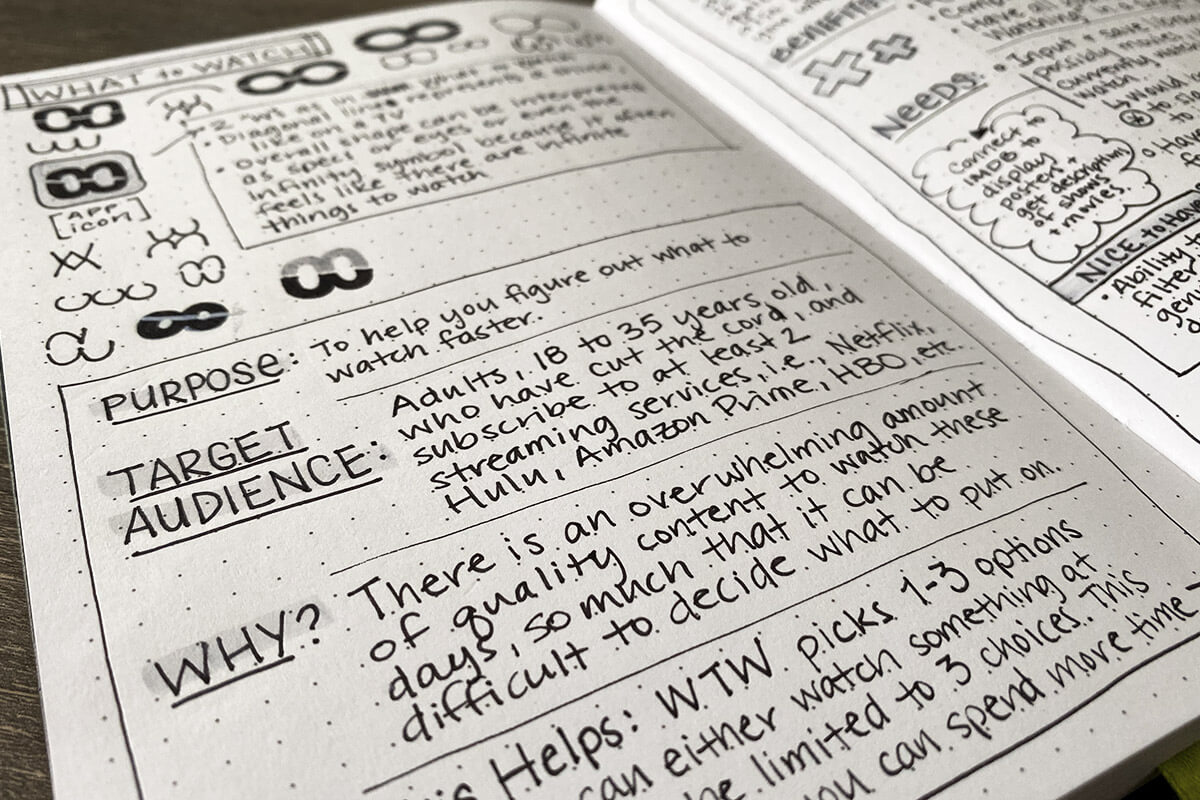 WHAT to WATCH
• 2 "W"s as in What to Watch
• Diagonal line represents a shine,
like on a TV
• overall shape can be interpreted
as specs or eyes or even the
infinity symbol because it often
feels like there are infinite
things to watch
[APP
icon]
PURPOSE: To help you figure out what to
watch faster.
TARGET
AUDIENCE: Adults, 18 to 35 years old,
who have cut the cord, and
subscribe to at least 2
streaming services, i.e., Netflix,
Hulu, Amazon Prime, HBO, etc.
WHY? There is an overwhelming amount
of quality content to watch these
days, so much that it can be
difficult to decide what to put on.
Helps: WTW picks 1-3 options
can either watch something at
limited to 3 choices. This
you can spend more time
NEEDS:
• Input + save
currently
watch.
↳ Would
to
Connect to
IMDB to
display
posters +
get description
of shows
+ movies.
NICE to Have
• Ability to
filter